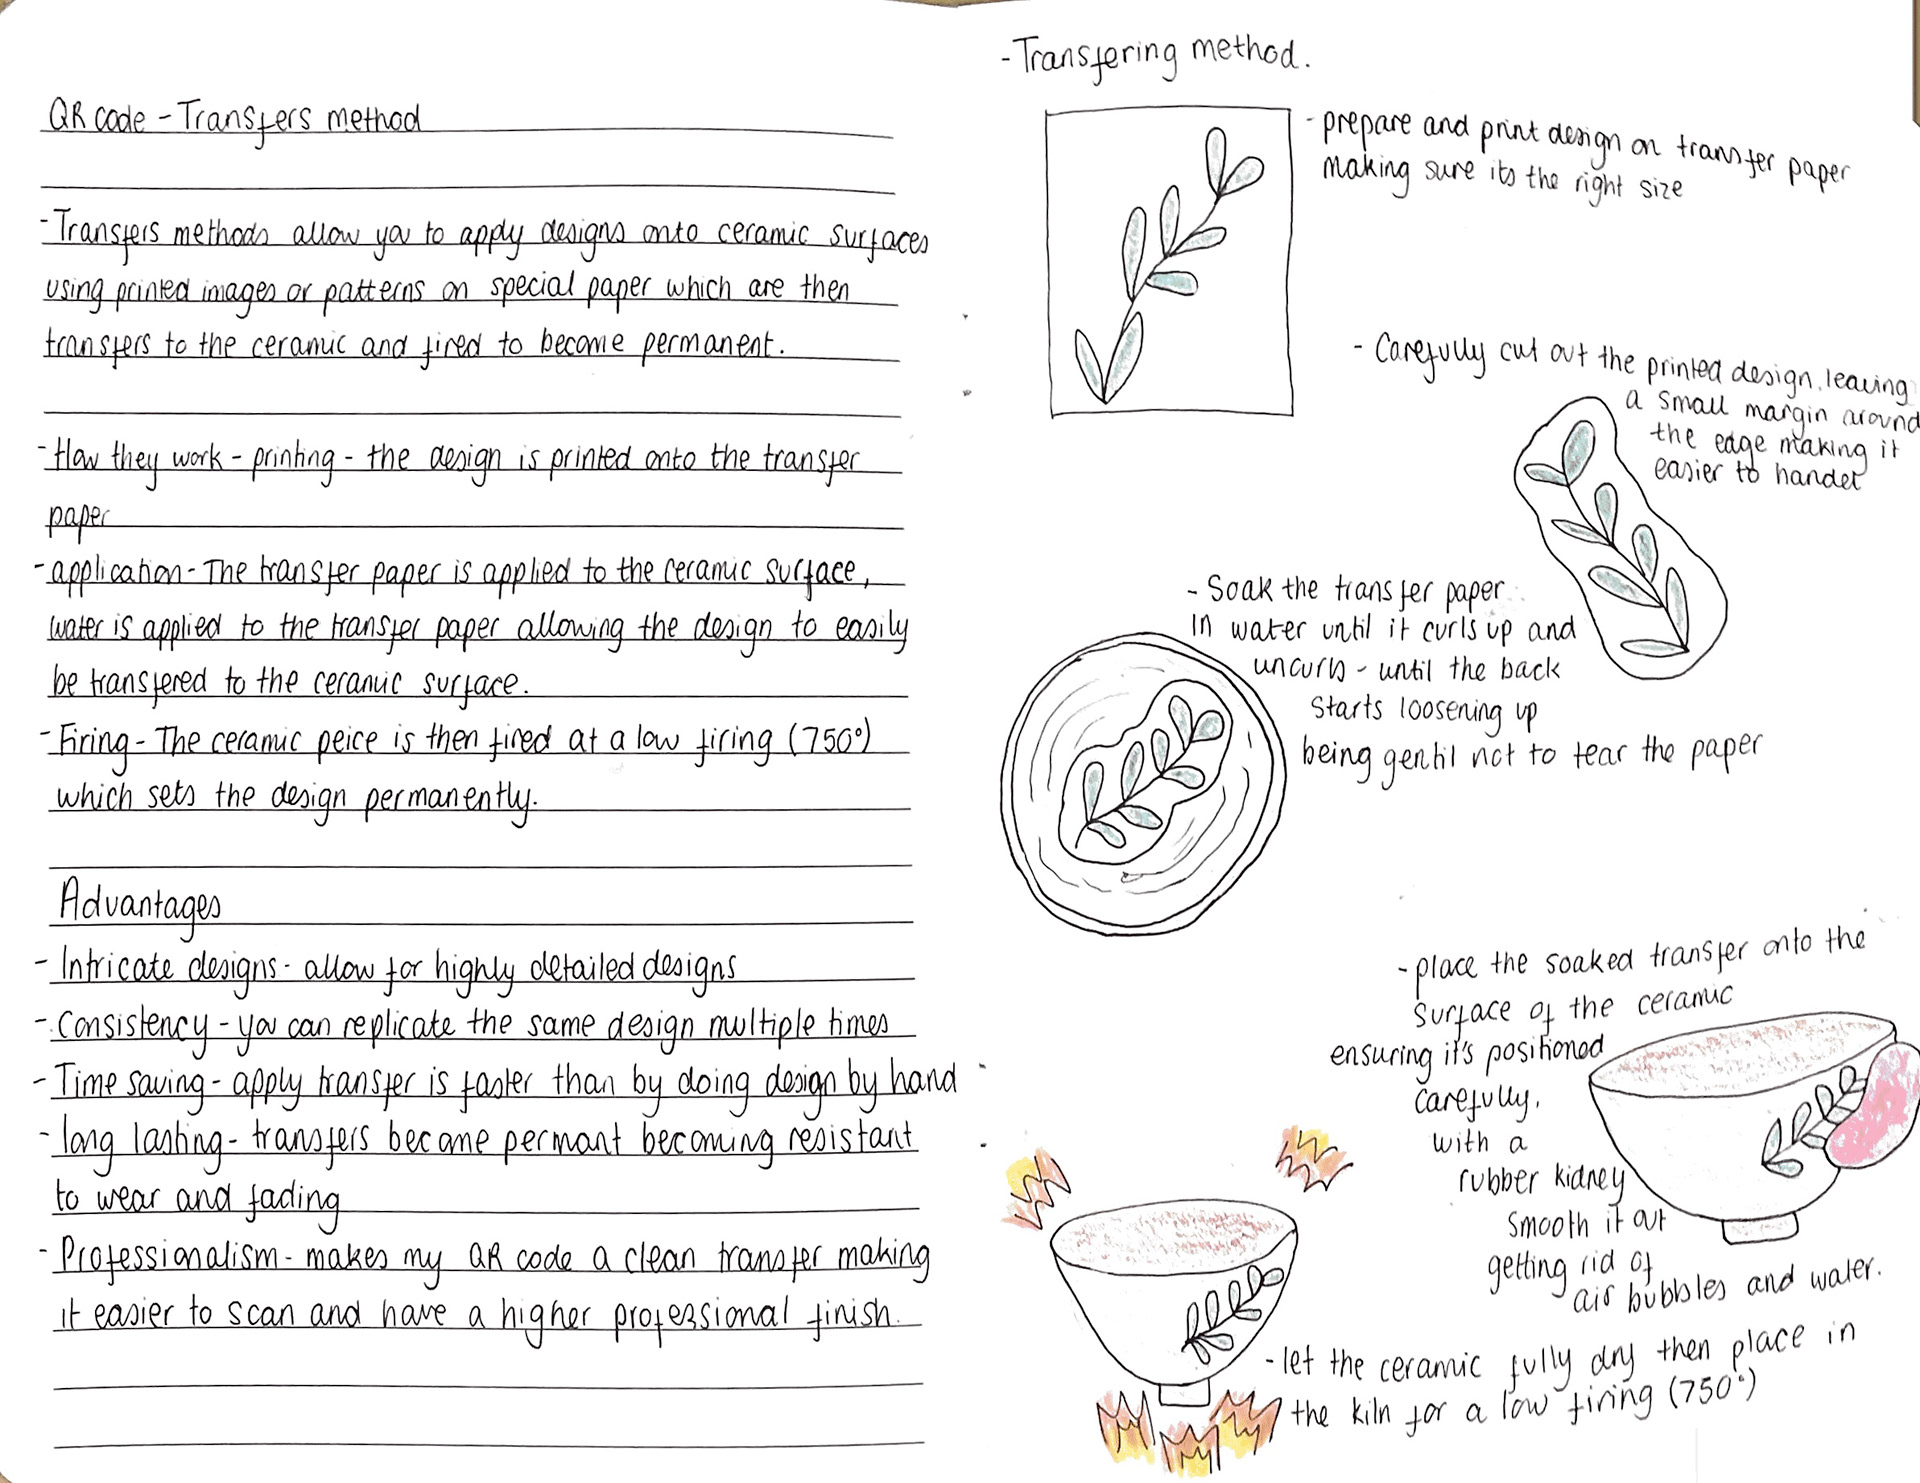 QR code - Transfers method
- Transfers methods allow you to apply designs onto ceramic surfaces
using printed images or patterns on special paper which are then
transfers to the ceramic and fired to become permanent.
- How they work - printing - the design is printed onto the transfer
paper
- application - The transfer paper is applied to the ceramic surface,
water is applied to the transfer paper allowing the design to easily
be transfered to the ceramic surface.
- Firing - The ceramic peice is then fired at a low firing (750°)
which sets the design permanently.
Advantages
- Intricate designs - allow for highly detailed designs
- Consistency - you can replicate the same design multiple times
- Time saving - apply transfer is faster than by doing design by hand
- long lasting - transfers become permant becoming resistant
to wear and fading
- Professionalism - makes my QR code a clean transfer making
it easier to scan and have a higher professional finish.
- Transfering method.
- prepare and print design on transfer paper
making sure its the right size
- Carefully cut out the printed design, leaving
a small margin around
the edge making it
easier to handel
- Soak the transfer paper
in water until it curls up and
uncurls - until the back
starts loosening up
being gentil not to tear the paper
- place the soaked transfer onto the
surface of the ceramic
ensuring it's positioned
carefully,
with a
rubber kidney
smooth it out
getting rid of
air bubbles and water.
- let the ceramic fully dry then place in
the kiln for a low firing (750°)